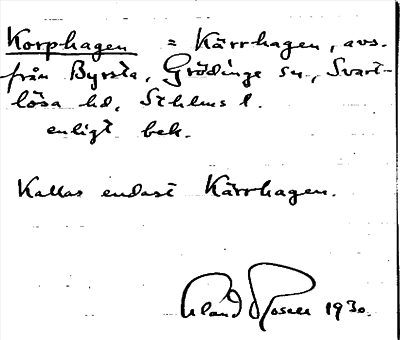 Korphagen = Kärrhagen, avs.
från Byrsta, Grödinge sn., Svart-
lösa hd, Sthlms l.
enligt bek.
Kallas endast Kärrhagen.
Erland Rosell 1930.